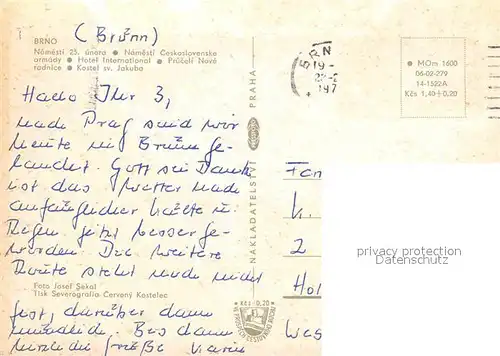 (Brünn)
BRNO
Náměstí 25. února ● Náměstí Československé
armády ● Hotel International ● Průčelí Nové
radnice ● Kostel sv. Jakuba
Hallo Ihr 3,
nach Prag sind wir
heute in Brünn ge-
landet. Gott sei Dank
ist das Wetter nach
anfänglicher Kälte u.
Regen jetzt besser ge-
worden. Die weitere
Route steht noch nicht
Foto Josef Sekal
Tisk Severografia Červený Kostelec
fest, darüber dann
mündlich. Bis dann
Grüße
NAKLADATELSTVÍ
PRAHA
Kčs 0,20
MOm 1600
06-02-279
14-1522A
Kčs 1,40 + 0,20
Fam
2
Hol
Wes
privacy protection
Datenschutz